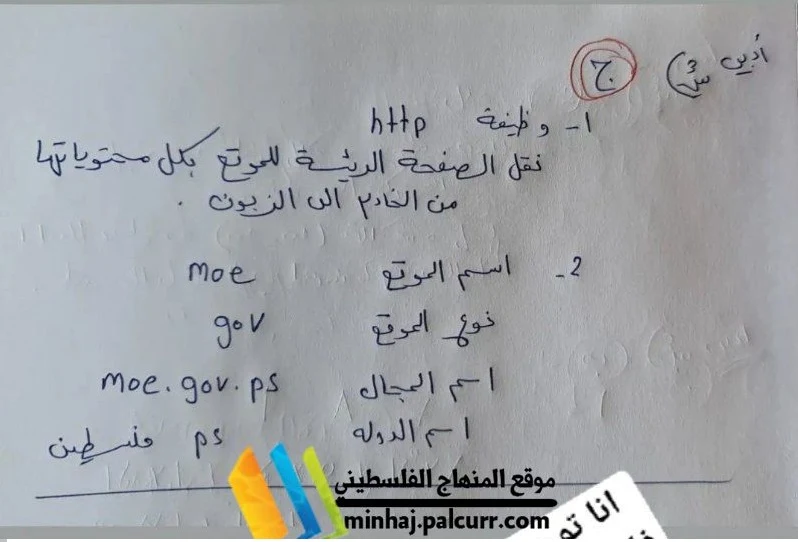 أدبي س3) ج
1- وظيفة http
نقل الصفحة الرئيسة للموقع بكل محتوياتها
من الخادم الى الزبون .
2- اسم الموقع moe
نوع الموقع gov
اسم المجال moe.gov.ps
اسم الدوله ps فلسطين
موقع المنهاج الفلسطيني
minhaj.palcurr.com
انا